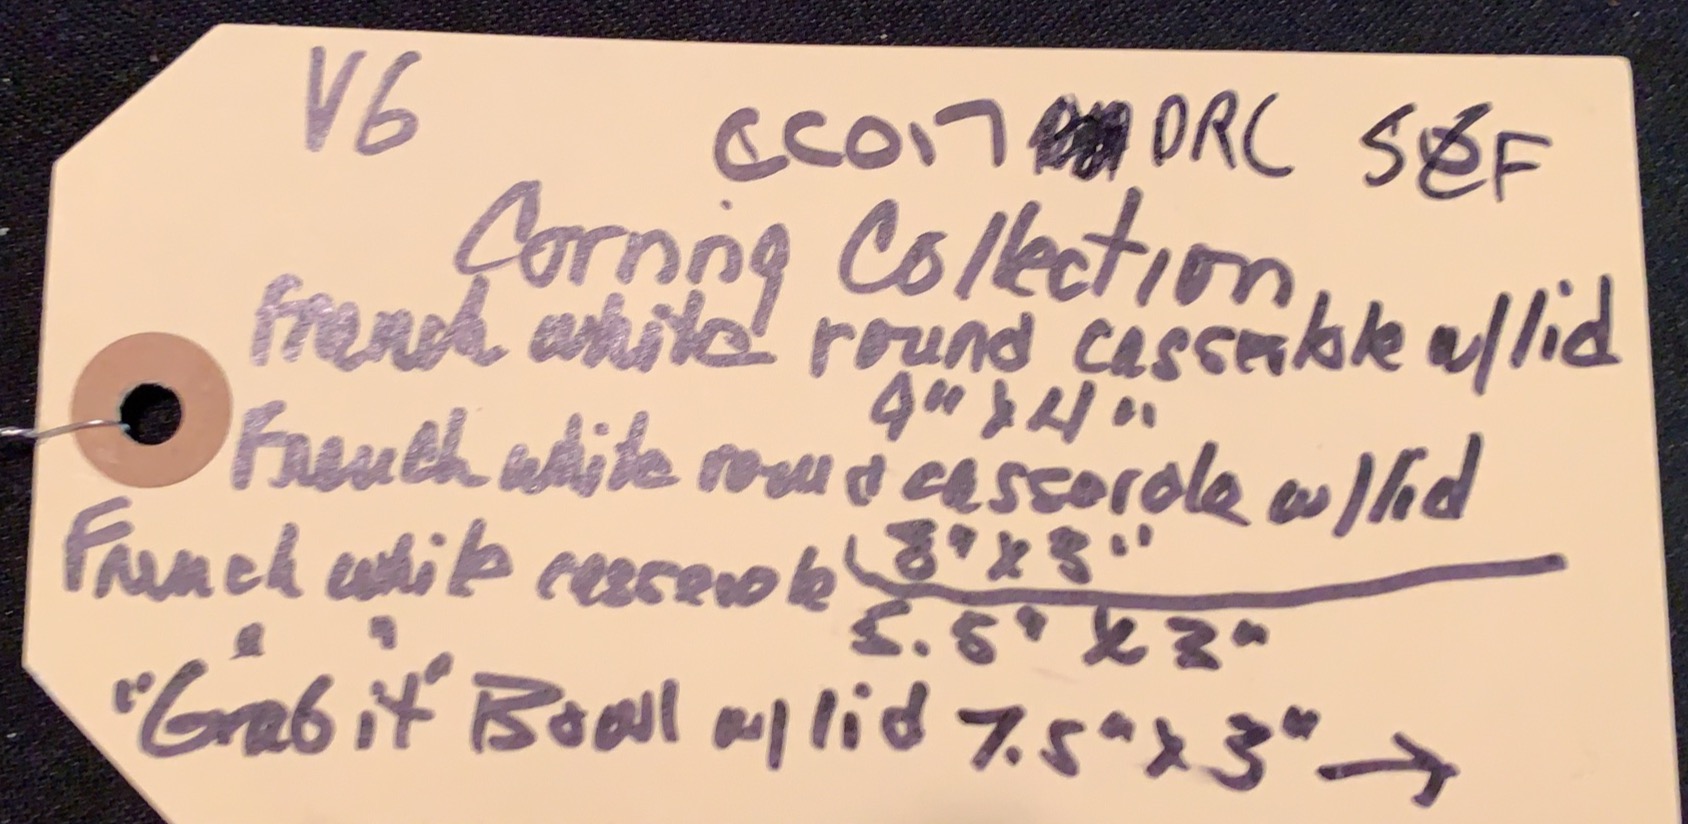 V6
CC017 DRC SEF
Corning Collection
French white round casserole w/lid
9" x 4"
French white round casserole w/lid
8" x 3"
French white casserole
5.5" x 3"
"Grab it" Bowl w/lid 7.5" x 3" →